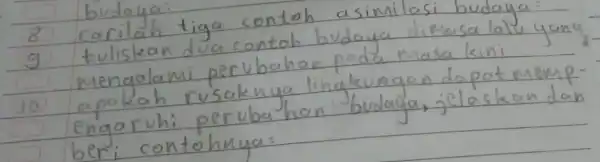 budaya:
8 carilah tiga contoh asimilasi budaya:
9 tuliskan dua contoh budaya dimasa lalu yang
mengalami perubahan pada masa kini
10 apakah rusaknya lingkungan dapat memp-
engaruhi perubahan budaya, jelaskan dan
beri contohnya: